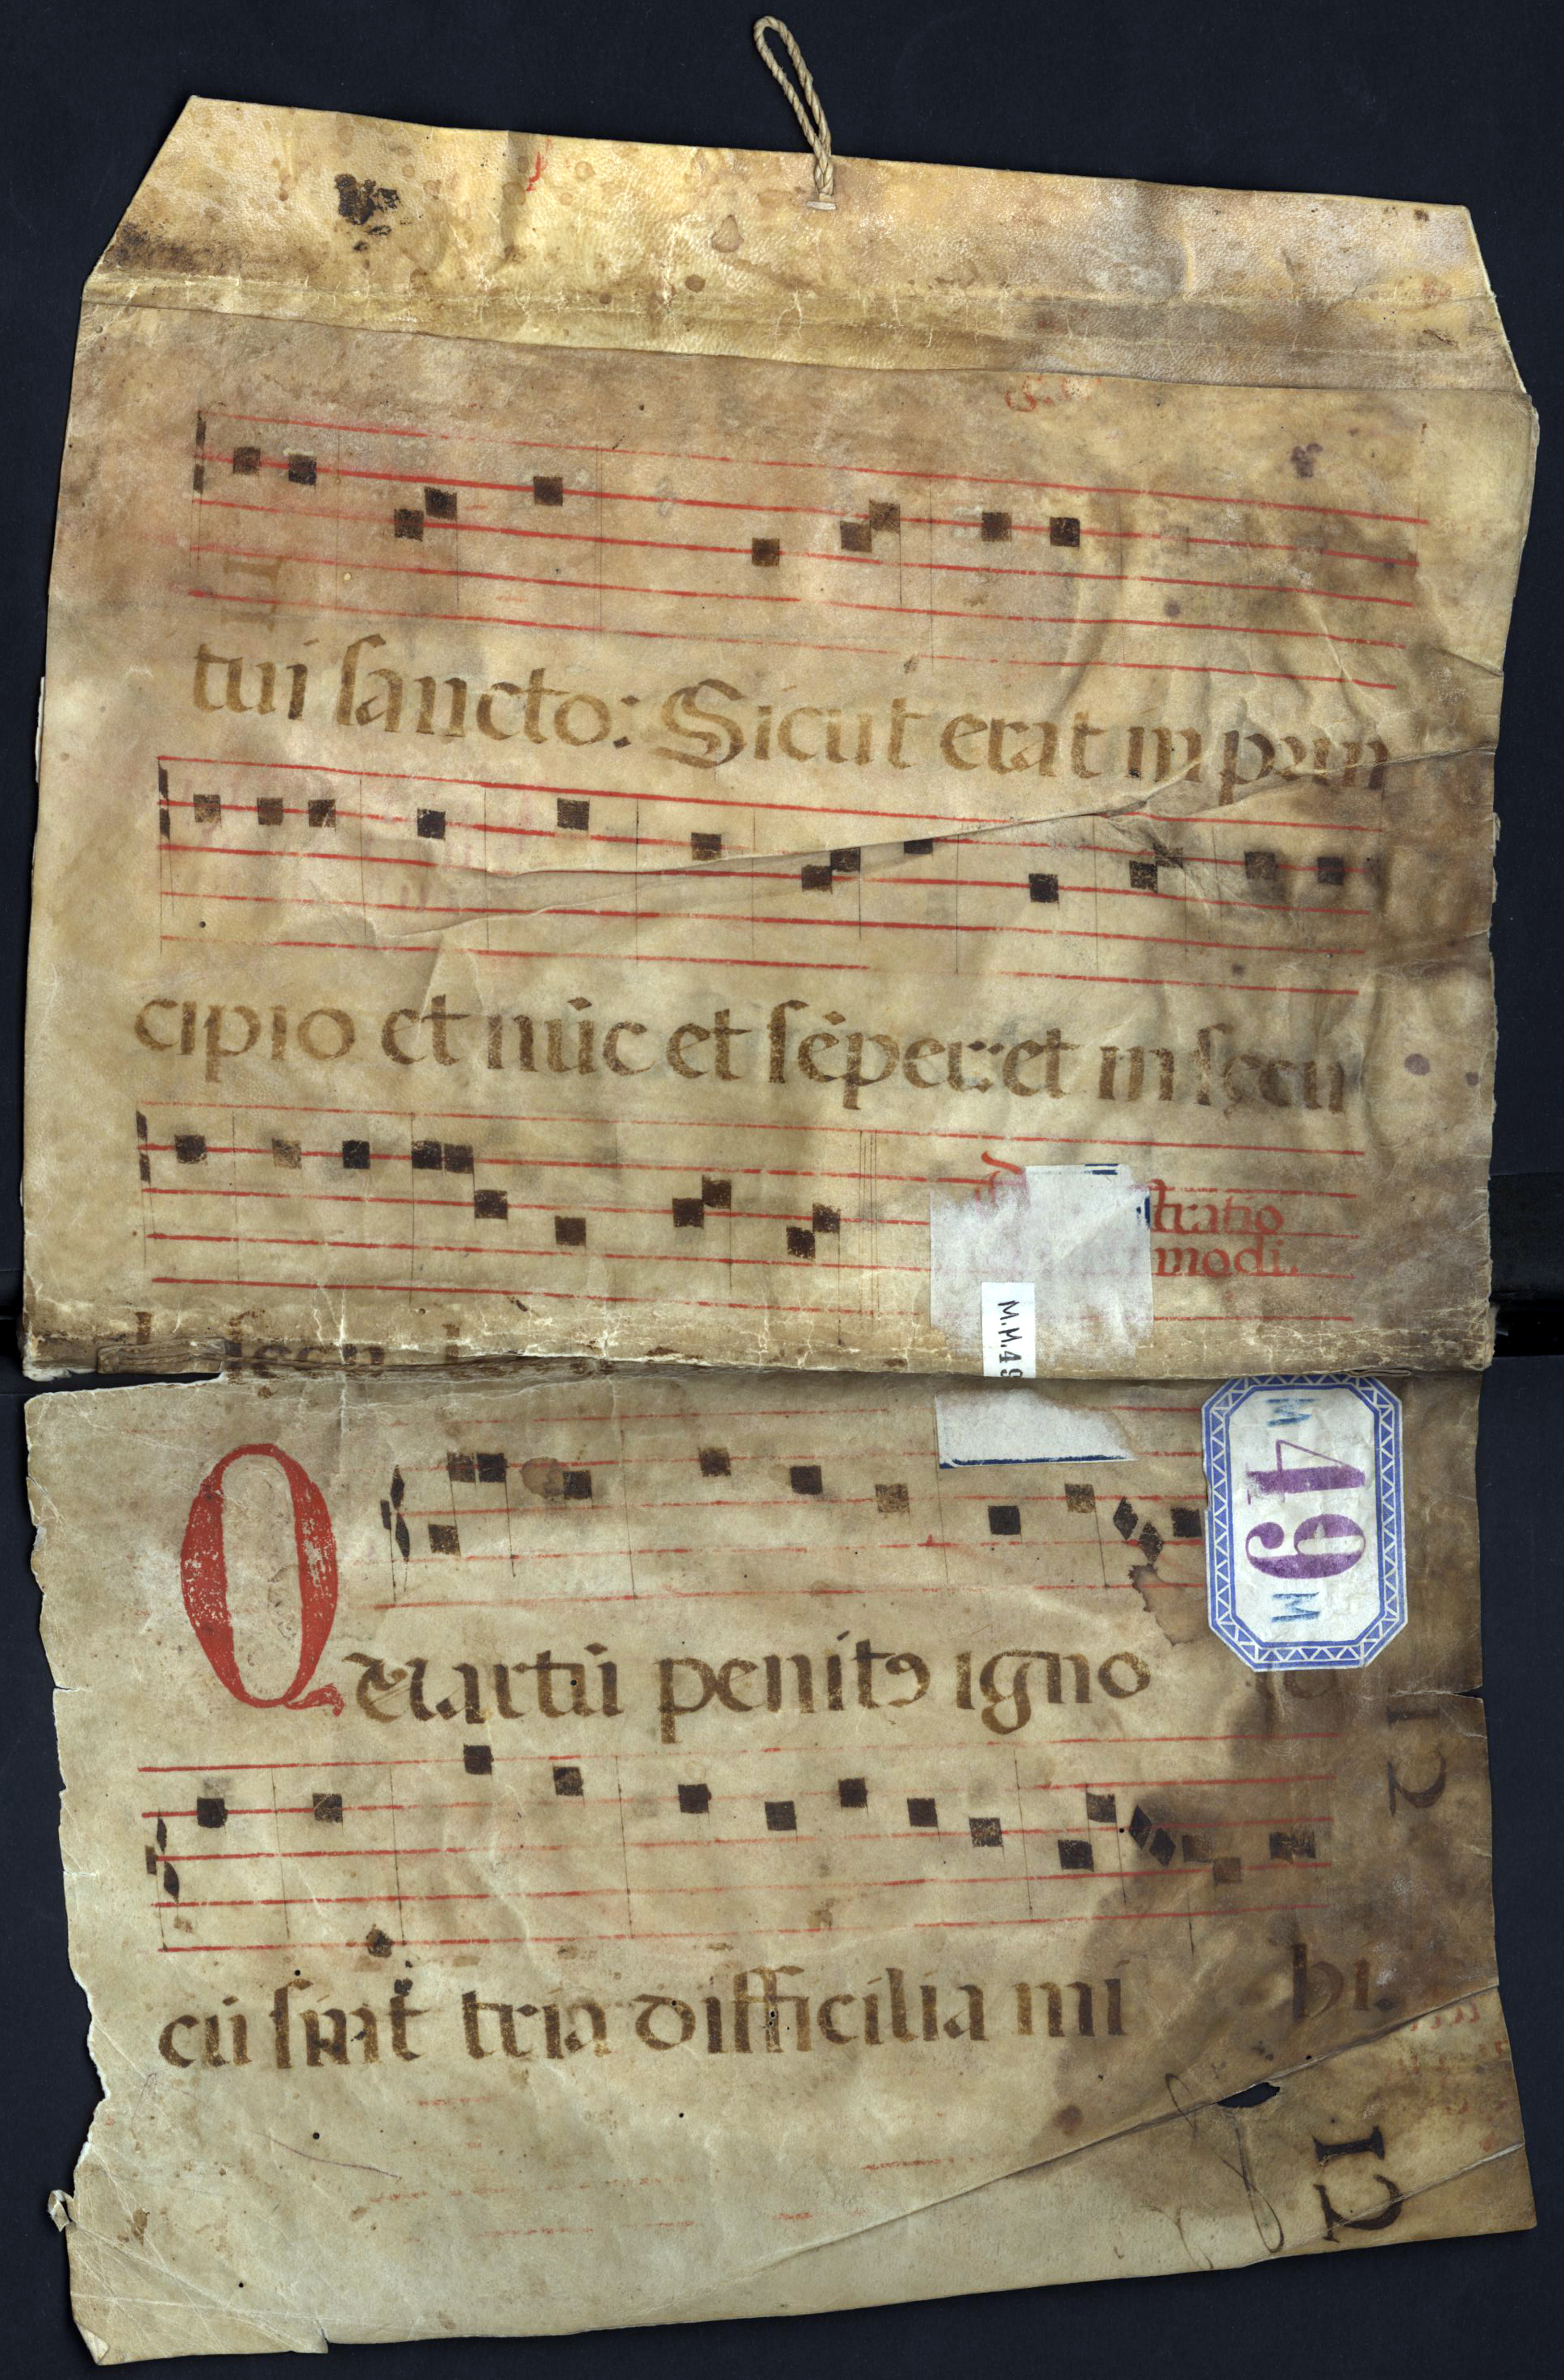 tui sancto: Sicut erat in prin
cipio et nūc et sēper: et in secu
tratio
modi.
M.M.49
M 49 M
Quartū penitꝰ igno
cū sint tria difficilia mi hi.
12
12